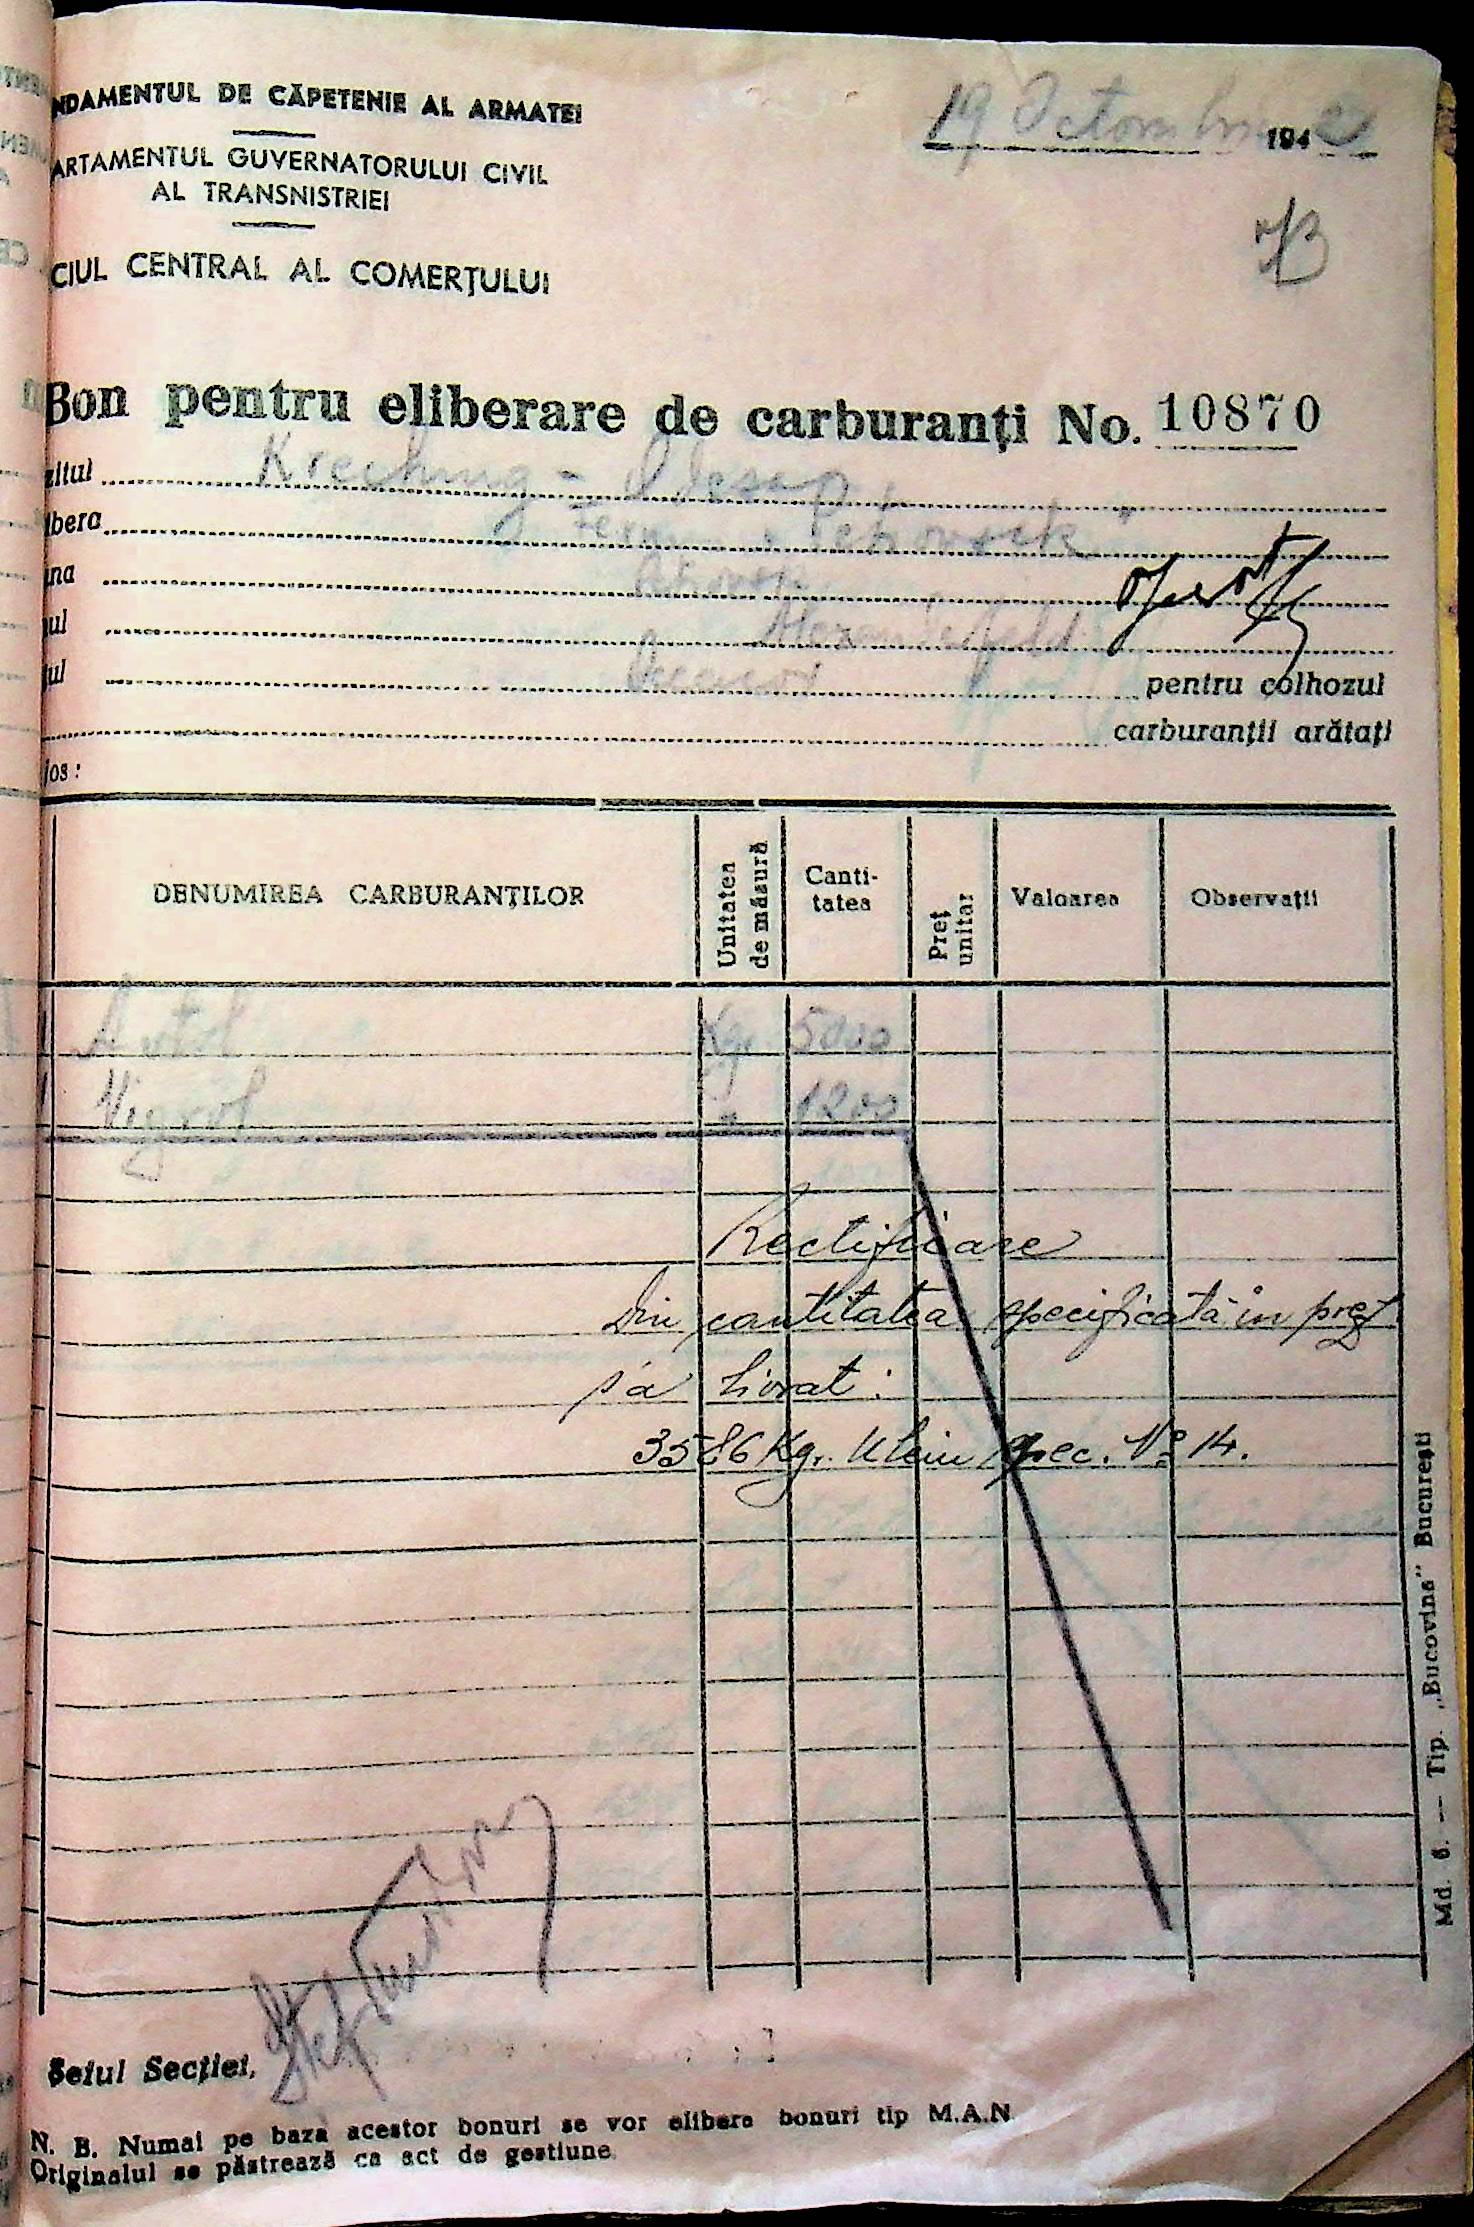 NDAMENTUL DE CĂPETENIE AL ARMATEI
19 Octombrie 1942
ARTAMENTUL GUVERNATORULUI CIVIL
AL TRANSNISTRIEI
CIUL CENTRAL AL COMERŢULUI
Bon pentru eliberare de carburanţi No. 10870
zitul
ibera
ina
ul
ul pentru colhozul
carburanţii arătaţi
jos :
DENUMIREA CARBURANŢILOR Unitatea de măsură Canti-tatea Preţ unitar Valoarea Observaţii
Avtol Kgr. 5000
Vigrol " 1200
Rectificare
Din cantitatea specificată în prez
s'a livrat :
3586 Kgr. Ulein spec. No 14.
Şeful Secţiei,
N. B. Numai pe baza acestor bonuri se vor elibera bonuri tip M.A.N.
Originalul se păstrează ca act de gestiune.
Md. 6. — Tip. „Bucovina" Bucureşti